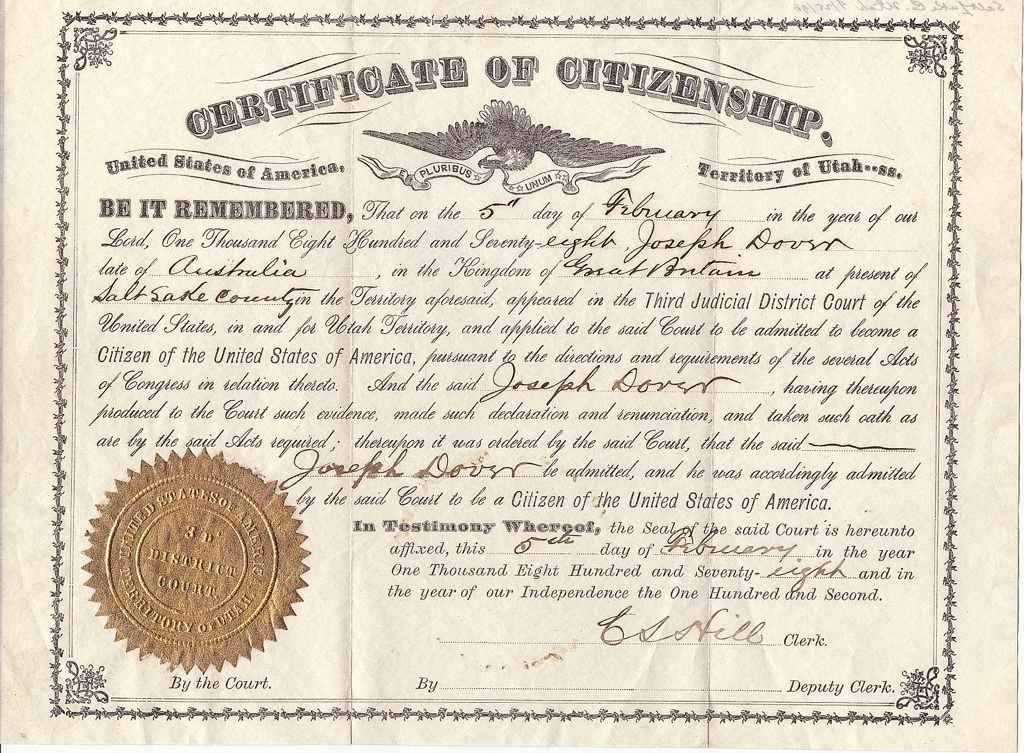 CERTIFICATE OF CITIZENSHIP.
United States of America,
PLURIBUS UNUM
Territory of Utah--ss.
BE IT REMEMBERED, That on the 5th day of February in the year of our
Lord, One Thousand Eight Hundred and Seventy-eight, Joseph Dover
late of Australia, in the Kingdom of Great Britain at present of
Salt Lake County in the Territory aforesaid, appeared in the Third Judicial District Court of the
United States, in and for Utah Territory, and applied to the said Court to be admitted to become a
Citizen of the United States of America, pursuant to the directions and requirements of the several Acts
of Congress in relation thereto. And the said Joseph Dover, having thereupon
produced to the Court such evidence, made such declaration and renunciation, and taken such oath as
are by the said Acts required; thereupon it was ordered by the said Court, that the said
Joseph Dover be admitted, and he was accordingly admitted
by the said Court to be a Citizen of the United States of America.
In Testimony Whereof, the Seal of the said Court is hereunto
affixed, this 5th day of February in the year
One Thousand Eight Hundred and Seventy-eight and in
the year of our Independence the One Hundred and Second.
C S Hill Clerk.
By the Court.
By Deputy Clerk.
UNITED STATES OF AMERICA
3D
DISTRICT
COURT
TERRITORY OF UTAH